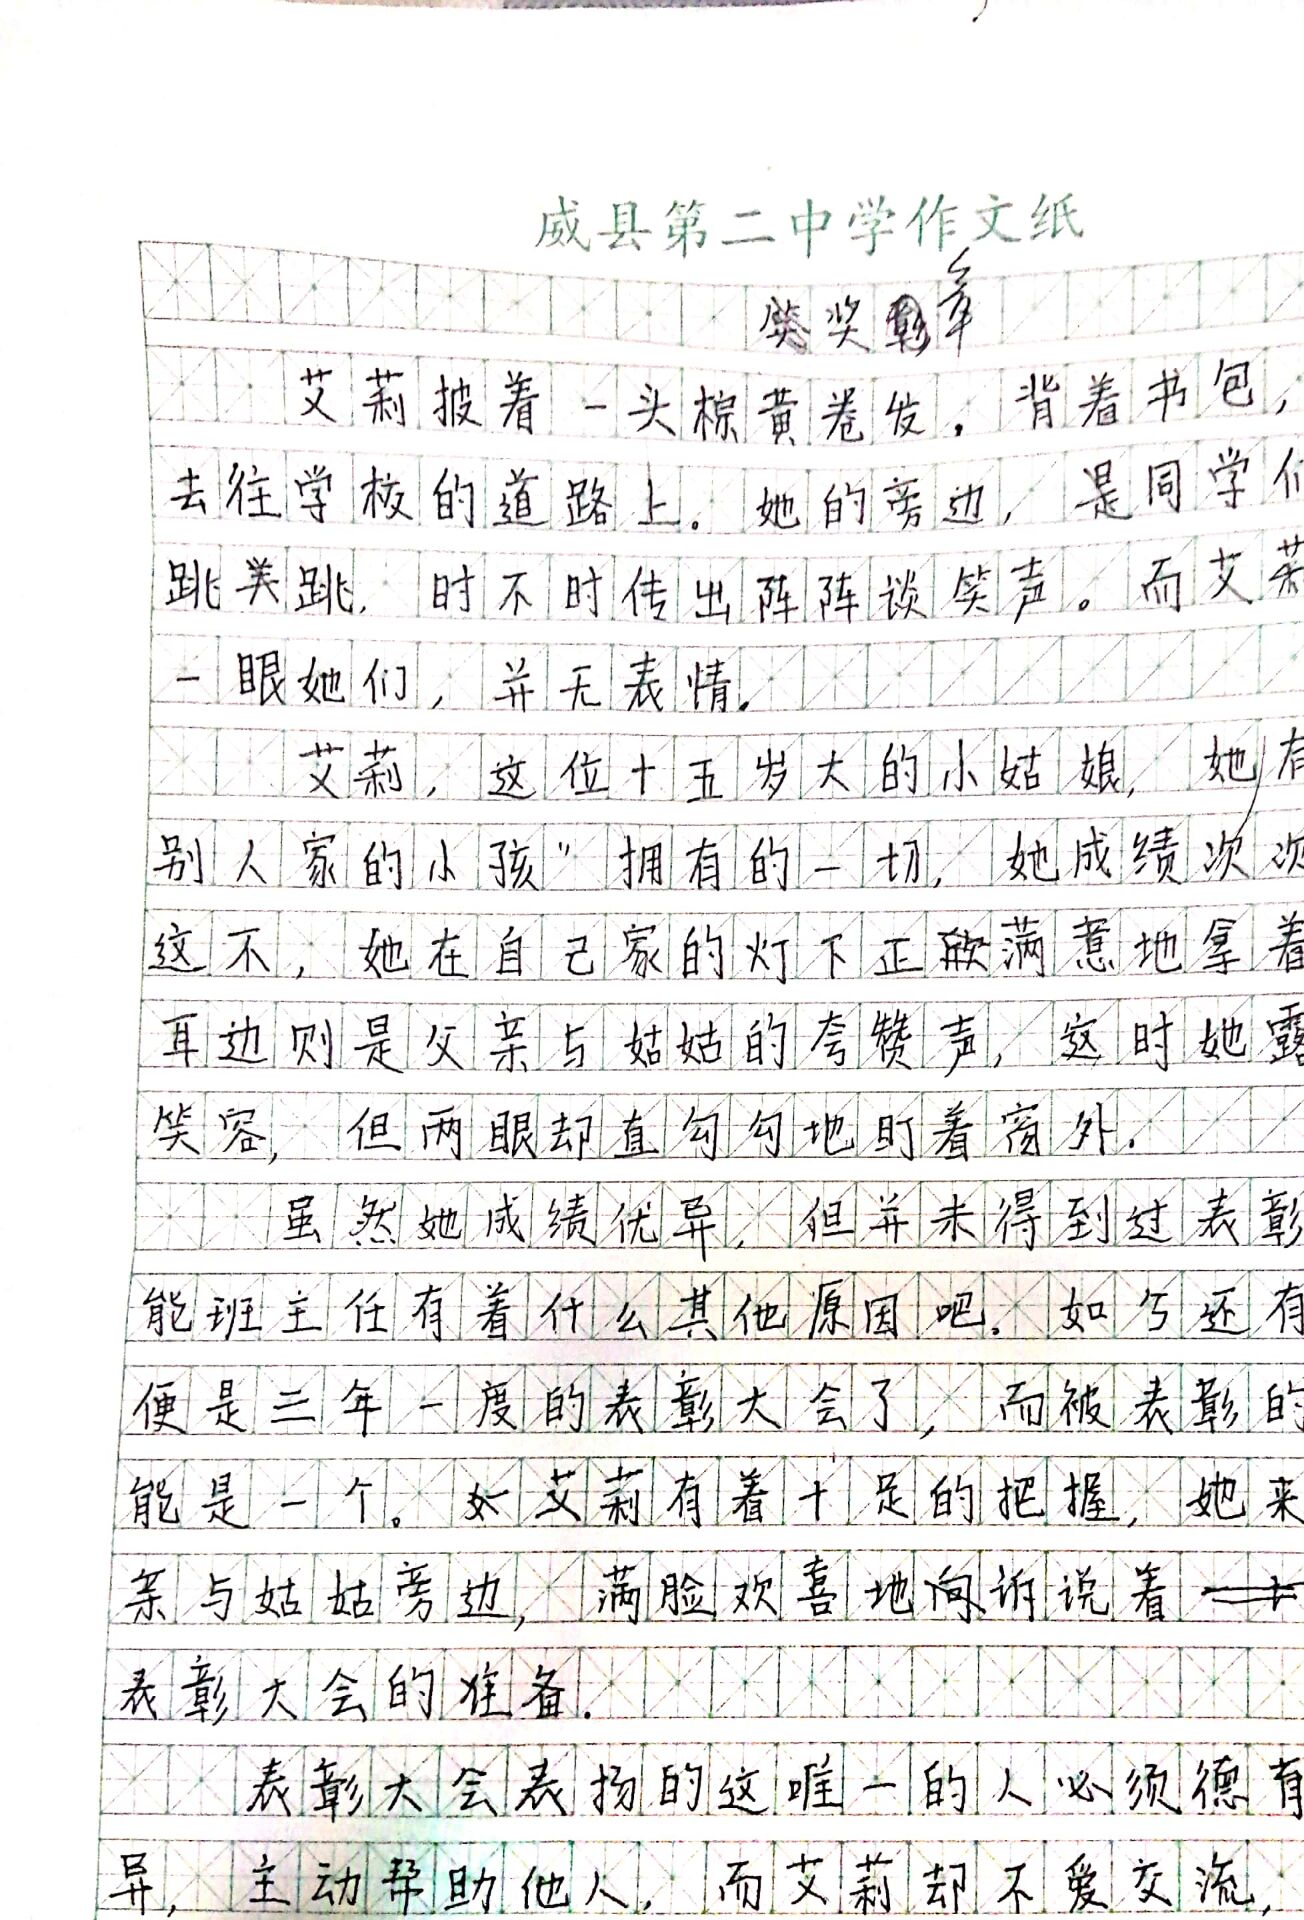 威县第二中学作文纸
奖章
艾莉披着一头棕黄卷发，背着书包，
去往学校的道路上。她的旁边，是同学们
跳关跳，时不时传出阵阵谈笑声。而艾莉
一眼她们，并无表情。
艾莉，这位十五岁大的小姑娘，她有
别人家的小孩”拥有的一切，她成绩次次
这不，她在自己家的灯下正欣满意地拿着
耳边则是父亲与姑姑的夸赞声，这时她露
笑容，但两眼却直勾勾地盯着窗外。
虽然她成绩优异，但并未得到过表彰
能班主任有着什么其他原因吧。如今还有
便是三年一度的表彰大会了，而被表彰的
能是一个。艾莉有着十足的把握，她来
亲与姑姑旁边，满脸欢喜地向诉说着
表彰大会的准备。
表彰大会表扬的这唯一的人必须德有
异，主动帮助他人，而艾莉却不爱交流，